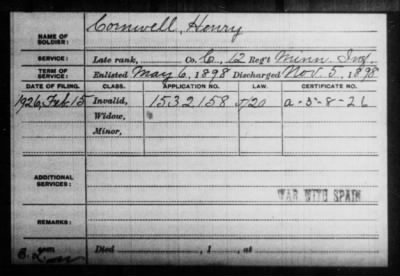 Cornwell, Henry
NAME OF
SOLDIER:
SERVICE:
Late rank, Co. C, 12 Reg't Minn. Inf.
TERM OF
SERVICE:
Enlisted May 6, 1898 Discharged Nov. 5, 1898
DATE OF FILING. CLASS. APPLICATION NO. LAW. CERTIFICATE NO.
1926, Feb. 15 Invalid, 1532158 a-3-8-26
Widow,
Minor,
ADDITIONAL
SERVICES:
WAR WITH SPAIN
REMARKS:
Died , 1 , at